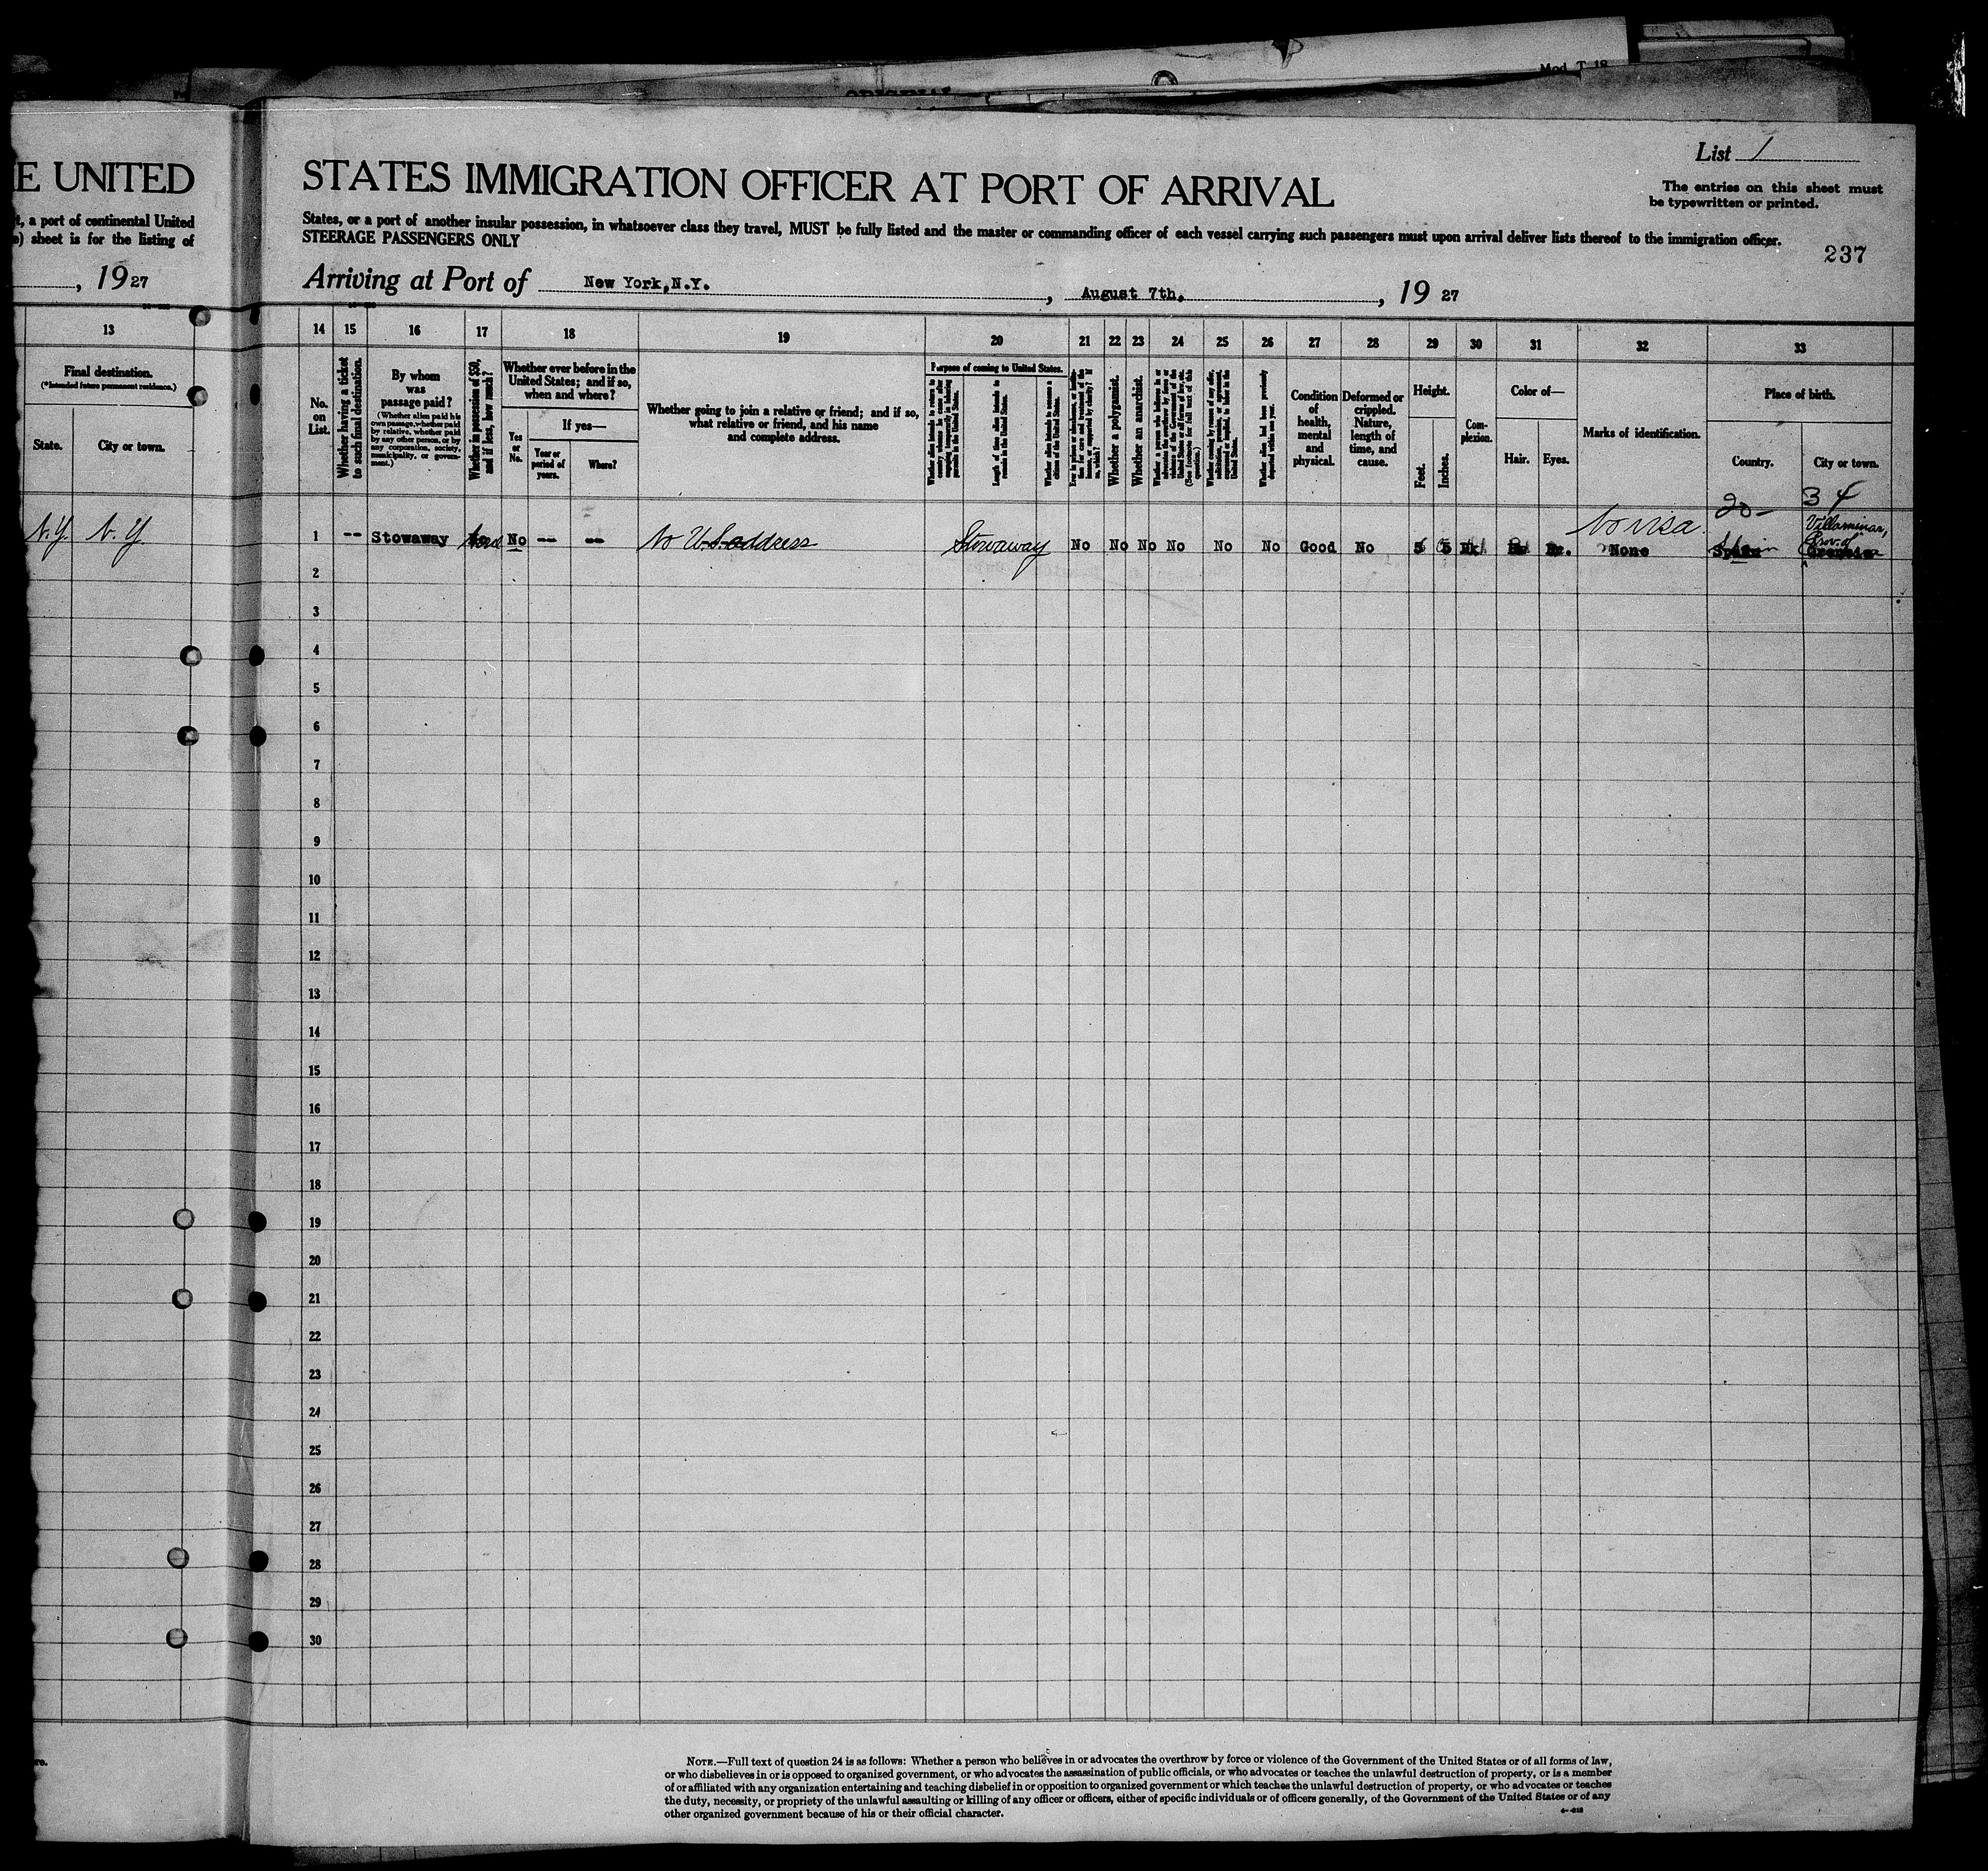 Mod. T. 18
ORIGINAL
E UNITED
t, a port of continental United
e) sheet is for the listing of
, 1927
13
Final destination.
(*Intended future permanent residence.)
State.
City or town.
N.Y. N.Y.
re.
List 1
STATES IMMIGRATION OFFICER AT PORT OF ARRIVAL
The entries on this sheet must
be typewritten or printed.
States, or a port of another insular possession, in whatsoever class they travel, MUST be fully listed and the master or commanding officer of each vessel carrying such passengers must upon arrival deliver lists thereof to the immigration officer.
STEERAGE PASSENGERS ONLY
237
Arriving at Port of New York, N.Y. , August 7th, , 19 27
14 15 16 17 18 19 20 21 22 23 24 25 26 27 28 29 30 31 32 33
No. on List.
Whether having a ticket to such final destination.
By whom was passage paid?
(Whether alien paid his own passage, whether paid by relative, whether paid by any other person, or by any corporation, society, municipality, or government.)
Whether in possession of $50, and if less, how much?
Whether ever before in the United States; and if so, when and where?
Yes or No.
If yes—
Year or period of years.
Where?
Whether going to join a relative or friend; and if so, what relative or friend, and his name and complete address.
Purpose of coming to United States.
Length of time alien intends to remain in the United States.
Whether alien intends to become a citizen of the United States.
Whether a polygamist.
Whether an anarchist.
(See footnote for full text of this question.)
Whether alien had been previously deported within one year.
Condition of health, mental and physical.
Deformed or crippled. Nature, length of time, and cause.
Height.
Feet.
Inches.
Complexion.
Color of—
Hair.
Eyes.
Marks of identification.
Place of birth.
Country.
City or town.
20- 34
No visa.
Villaminar,
Prov. of
1 -- Stowaway No -- -- No U.S. address Stowaway No No No No No No Good No 5 5 Dk Br. None Spain
2
3
4
5
6
7
8
9
10
11
12
13
14
15
16
17
18
19
20
21
22
23
24
25
26
27
28
29
30
NOTE.—Full text of question 24 is as follows: Whether a person who believes in or advocates the overthrow by force or violence of the Government of the United States or of all forms of law,
or who disbelieves in or is opposed to organized government, or who advocates the assassination of public officials, or who advocates or teaches the unlawful destruction of property, or is a member
of or affiliated with any organization entertaining and teaching disbelief in or opposition to organized government or which teaches the unlawful destruction of property, or who advocates or teaches
the duty, necessity, or propriety of the unlawful assaulting or killing of any officer or officers, either of specific individuals or of officers generally, of the Government of the United States or of any
other organized government because of his or their official character.